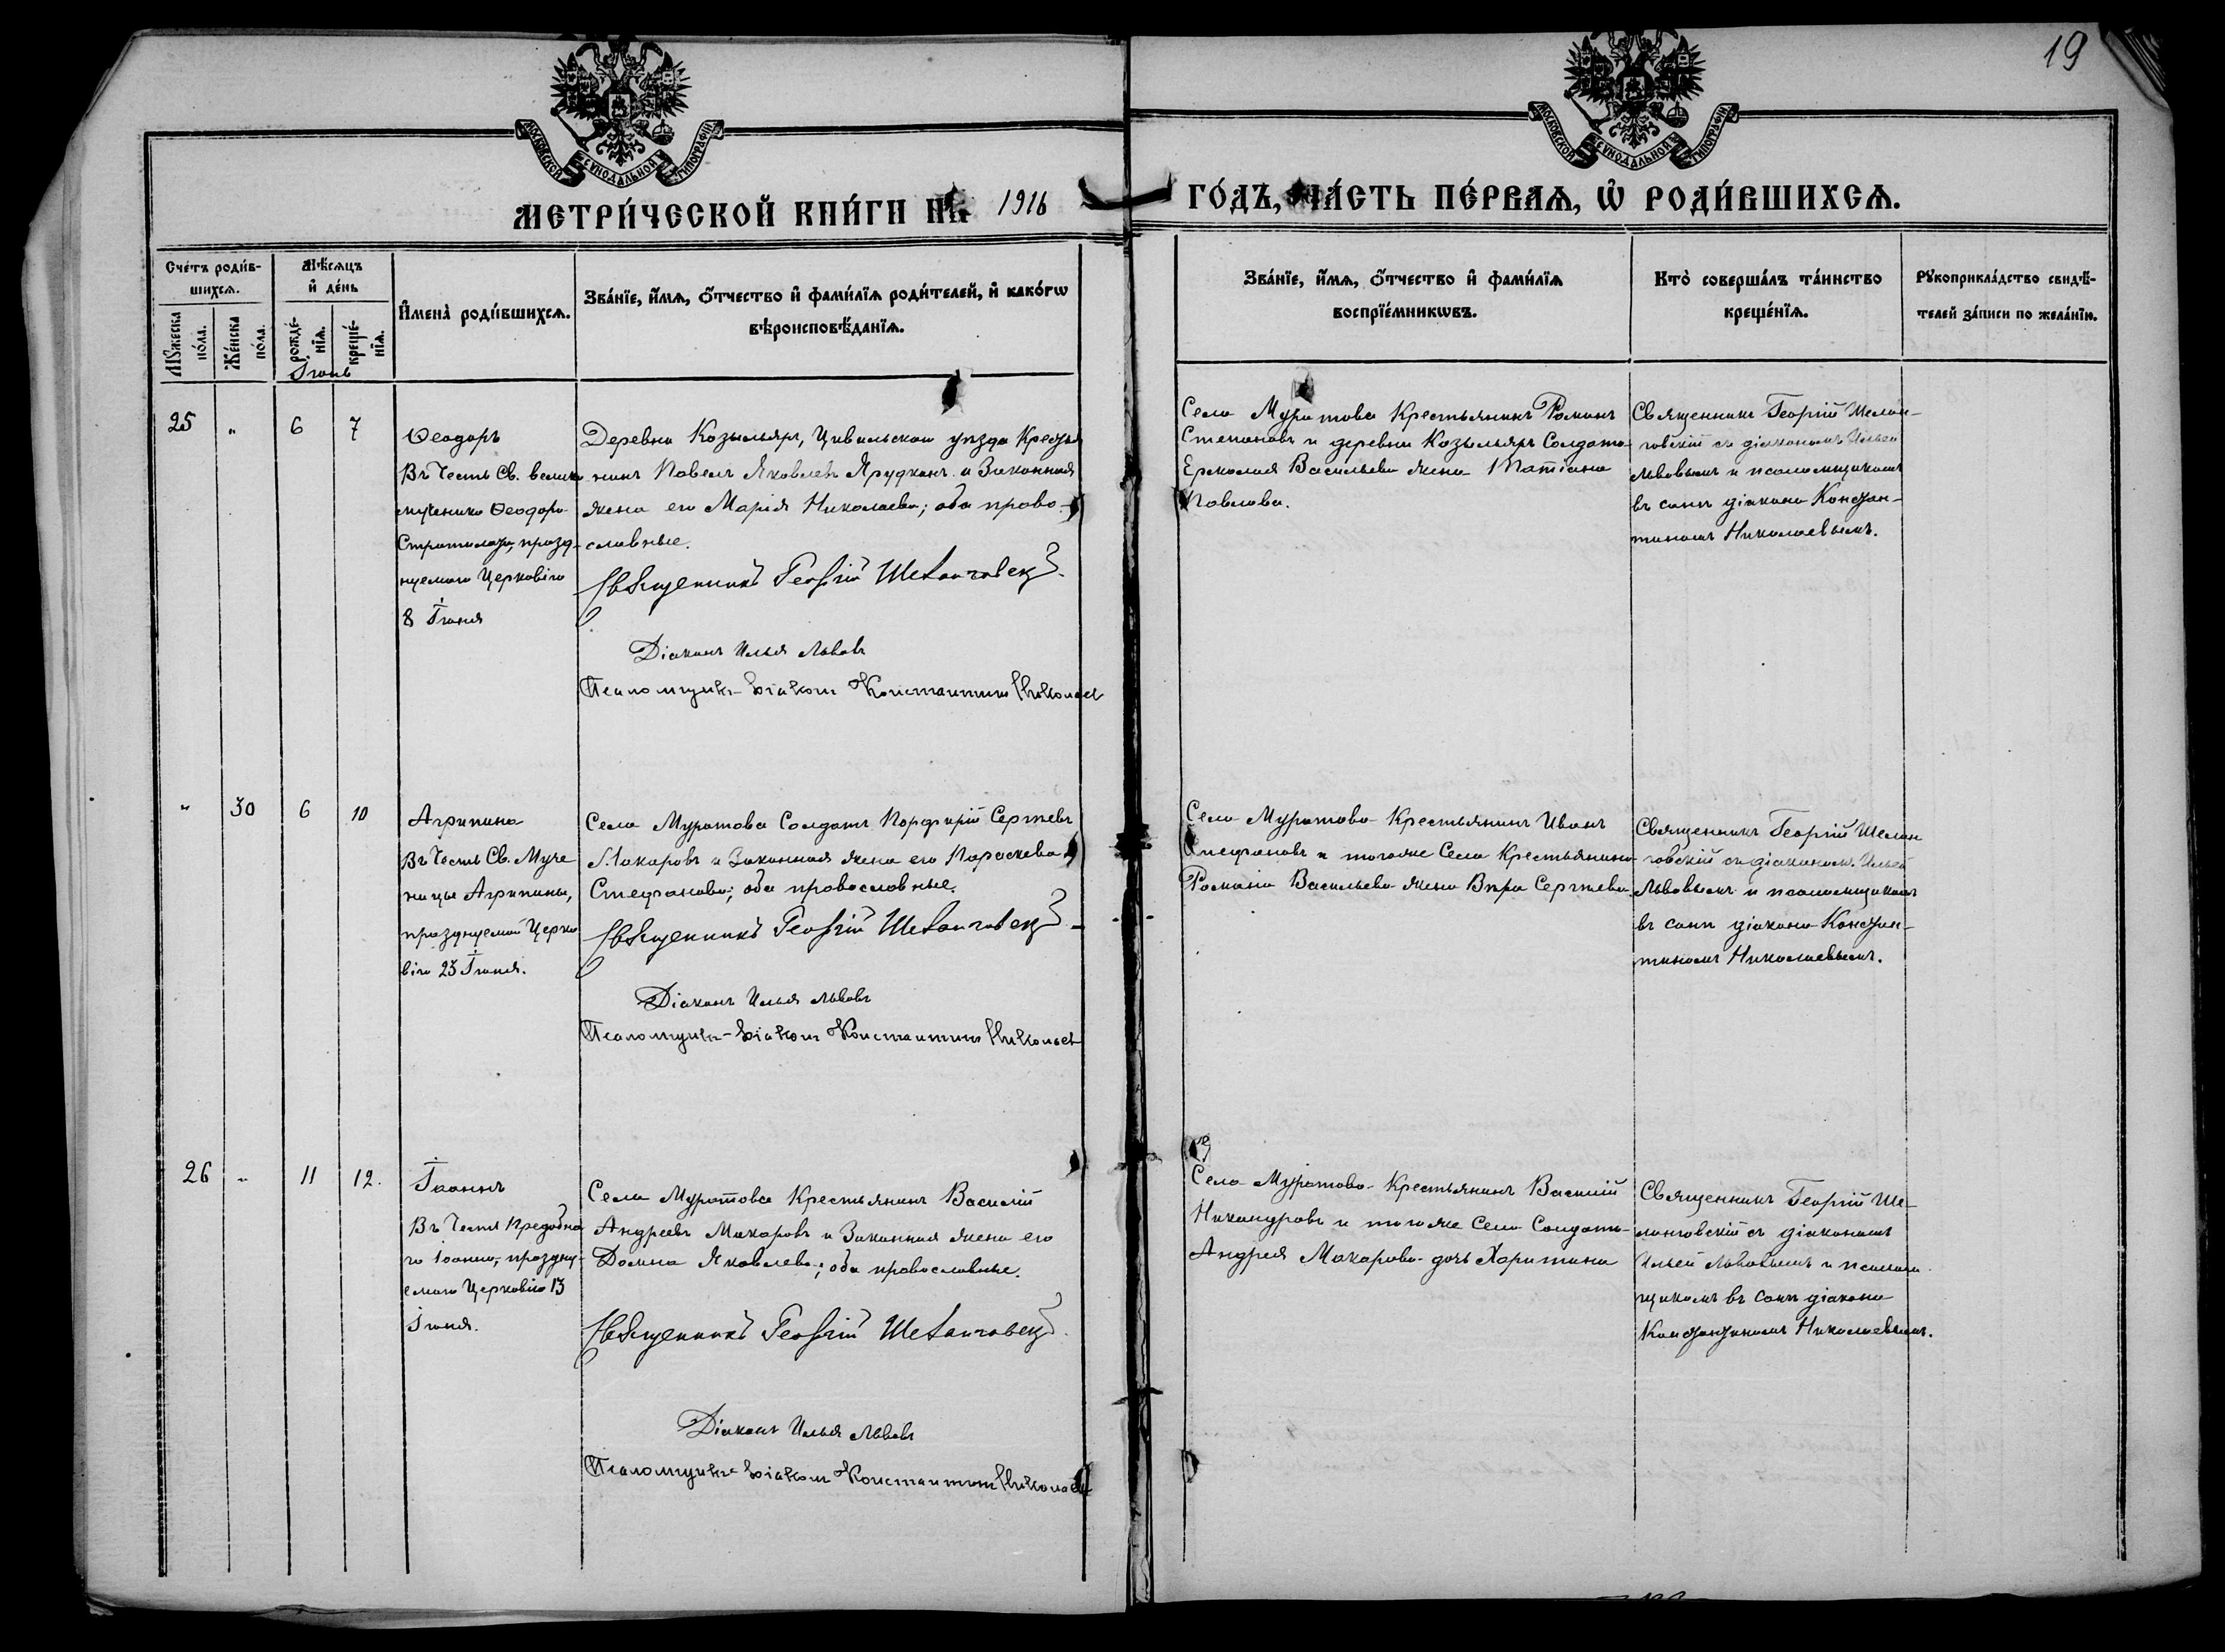 19
МОСКОВСКОЙ СѴНОДАЛЬНОЙ ТИПОГРАФІИ
МОСКОВСКОЙ СѴНОДАЛЬНОЙ ТИПОГРАФІИ
МЕТРИ́ЧЕСКОЙ КНИ́ГИ НА 1916
ГО́ДЪ, ЧА́СТЬ ПЕ́РВАѦ, Ѡ҆ РОДИ́ВШИХСѦ.
Сче́тъ роди́в-
шихсѧ.
Мꙋ́жеска
по́ла.
Же́нска
по́ла.
Мѣ́сѧцъ
и҆ де́нь
рожде́-
нїѧ.
креще́-
нїѧ.
Іюнь
И҆мена̀ роди́вшихсѧ.
Зва́нїе, и҆́мѧ, ѻ҆́тчество и҆ фами́лїѧ роди́телей, и҆ како́гѡ
вѣроисповѣ́данїѧ.
Зва́нїе, и҆́мѧ, ѻ҆́тчество и҆ фами́лїѧ
воспрїе́мникѡвъ.
Кто̀ соверша́лъ та́инство
креще́нїѧ.
Рꙋкоприкла́дство свидѣ́-
телей за́писи по жела́нїю.
25 " 6 7
Ѳеодоръ
Въ Честь Св. велико
мученика Ѳеодора
Стратилата, празд-
нуемаго Церковію
8 Іюня
Деревни Козыльяръ, Цивильскаго уѣзда Крестья
нинъ Павелъ Яковлевъ Ярудкинъ и Законная
жена его Марія Николаева; оба право-
славные.
Священникъ Георгій Шеланговск
Діаконъ Илья Львовъ
Псаломщикъ-діаконъ Константинъ Николаев
Села Муратова Крестьянинъ Романъ
Степановъ и деревни Козыльяръ Солдата
Ермолая Васильева жена Татіана
Павлова.
Священникъ Георгій Шелан-
говскій съ діакономъ Ильей
Львовымъ и псаломщикомъ
въ санѣ діакона Констан-
тиномъ Николаевымъ.
" 30 6 10
Агрипина
Въ Честь Св. Муче
ницы Агрипины,
празднуемой Церко
вію 23 Іюня.
Села Муратова Солдатъ Порфирій Сергѣевъ
Макаровъ и Законная жена его Параскева
Стефанова; оба православные.
Священникъ Георгій Шеланговск
Діаконъ Илья Львовъ
Псаломщикъ-діаконъ Константинъ Николаев
Села Муратова Крестьянинъ Иванъ
Стефановъ и тогоже Села Крестьянина
Романа Васильева жена Вѣра Сергѣева.
Священникъ Георгій Шелан
говскій съ діакономъ Ильей
Львовымъ и псаломщикомъ
въ санѣ діакона Констан-
тиномъ Николаевымъ.
26 " 11 12.
Іоаннъ
Въ Честь Преподобна
го Іоанна, праздну-
емаго Церковію 13
Іюня.
Села Муратова Крестьянинъ Василій
Андреевъ Макаровъ и Законная жена его
Домна Яковлева; оба православные.
Священникъ Георгій Шеланговск
Діаконъ Илья Львовъ
Псаломщикъ-діаконъ Константинъ Николаев
Села Муратова Крестьянинъ Василій
Никандровъ и тогоже Села Солдата
Андрея Макарова дочь Харитина
Священникъ Георгій Ше-
ланговскій съ діакономъ
Ильей Львовымъ и псалом
щикомъ въ санѣ діакона
Константиномъ Николаевымъ.